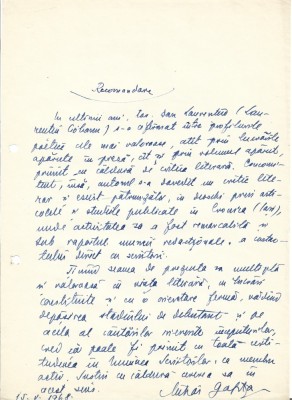 Recomandare
În ultimii ani, tov. Dan Laurențiu (Lau-
rențiu Ciobanu) s-a afirmat între profilurile
poetice cele mai valoroase, atît prin lucrările
apărute în presă, cît și prin volumul apărut,
primit cu căldură de critica literară. Concomi-
tent, însă, autorul s-a dovedit un critic lite-
rar și eseist pătrunzător, în deosebi prin arti-
colele și studiile publicate în Cronica (Iași),
unde activitatea sa a fost remarcabilă și
sub raportul muncii redacționale, a contac-
tului direct cu scriitori.
Ținînd seama de prezența sa multiplă
și valoroasă în viața literară, în lucrări
constituite și cu o orientare fermă, vădind
depășirea stadiului de debutant și de
acela al căutărilor începuturilor,
cred că poate fi primit cu toată certi-
tudinea în Uniunea Scriitorilor, ca membru
activ. Susțin cu căldură cererea sa în
acest sens.
Mihai Gafița
1968